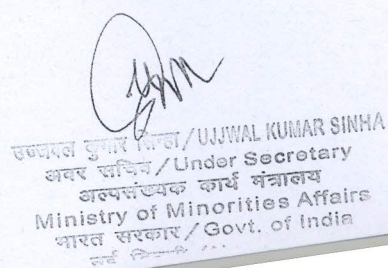 उज्जवल कुमार सिन्हा / UJJWAL KUMAR SINHA
अवर सचिव / Under Secretary
अल्पसंख्यक कार्य मंत्रालय
Ministry of Minorities Affairs
भारत सरकार / Govt. of India